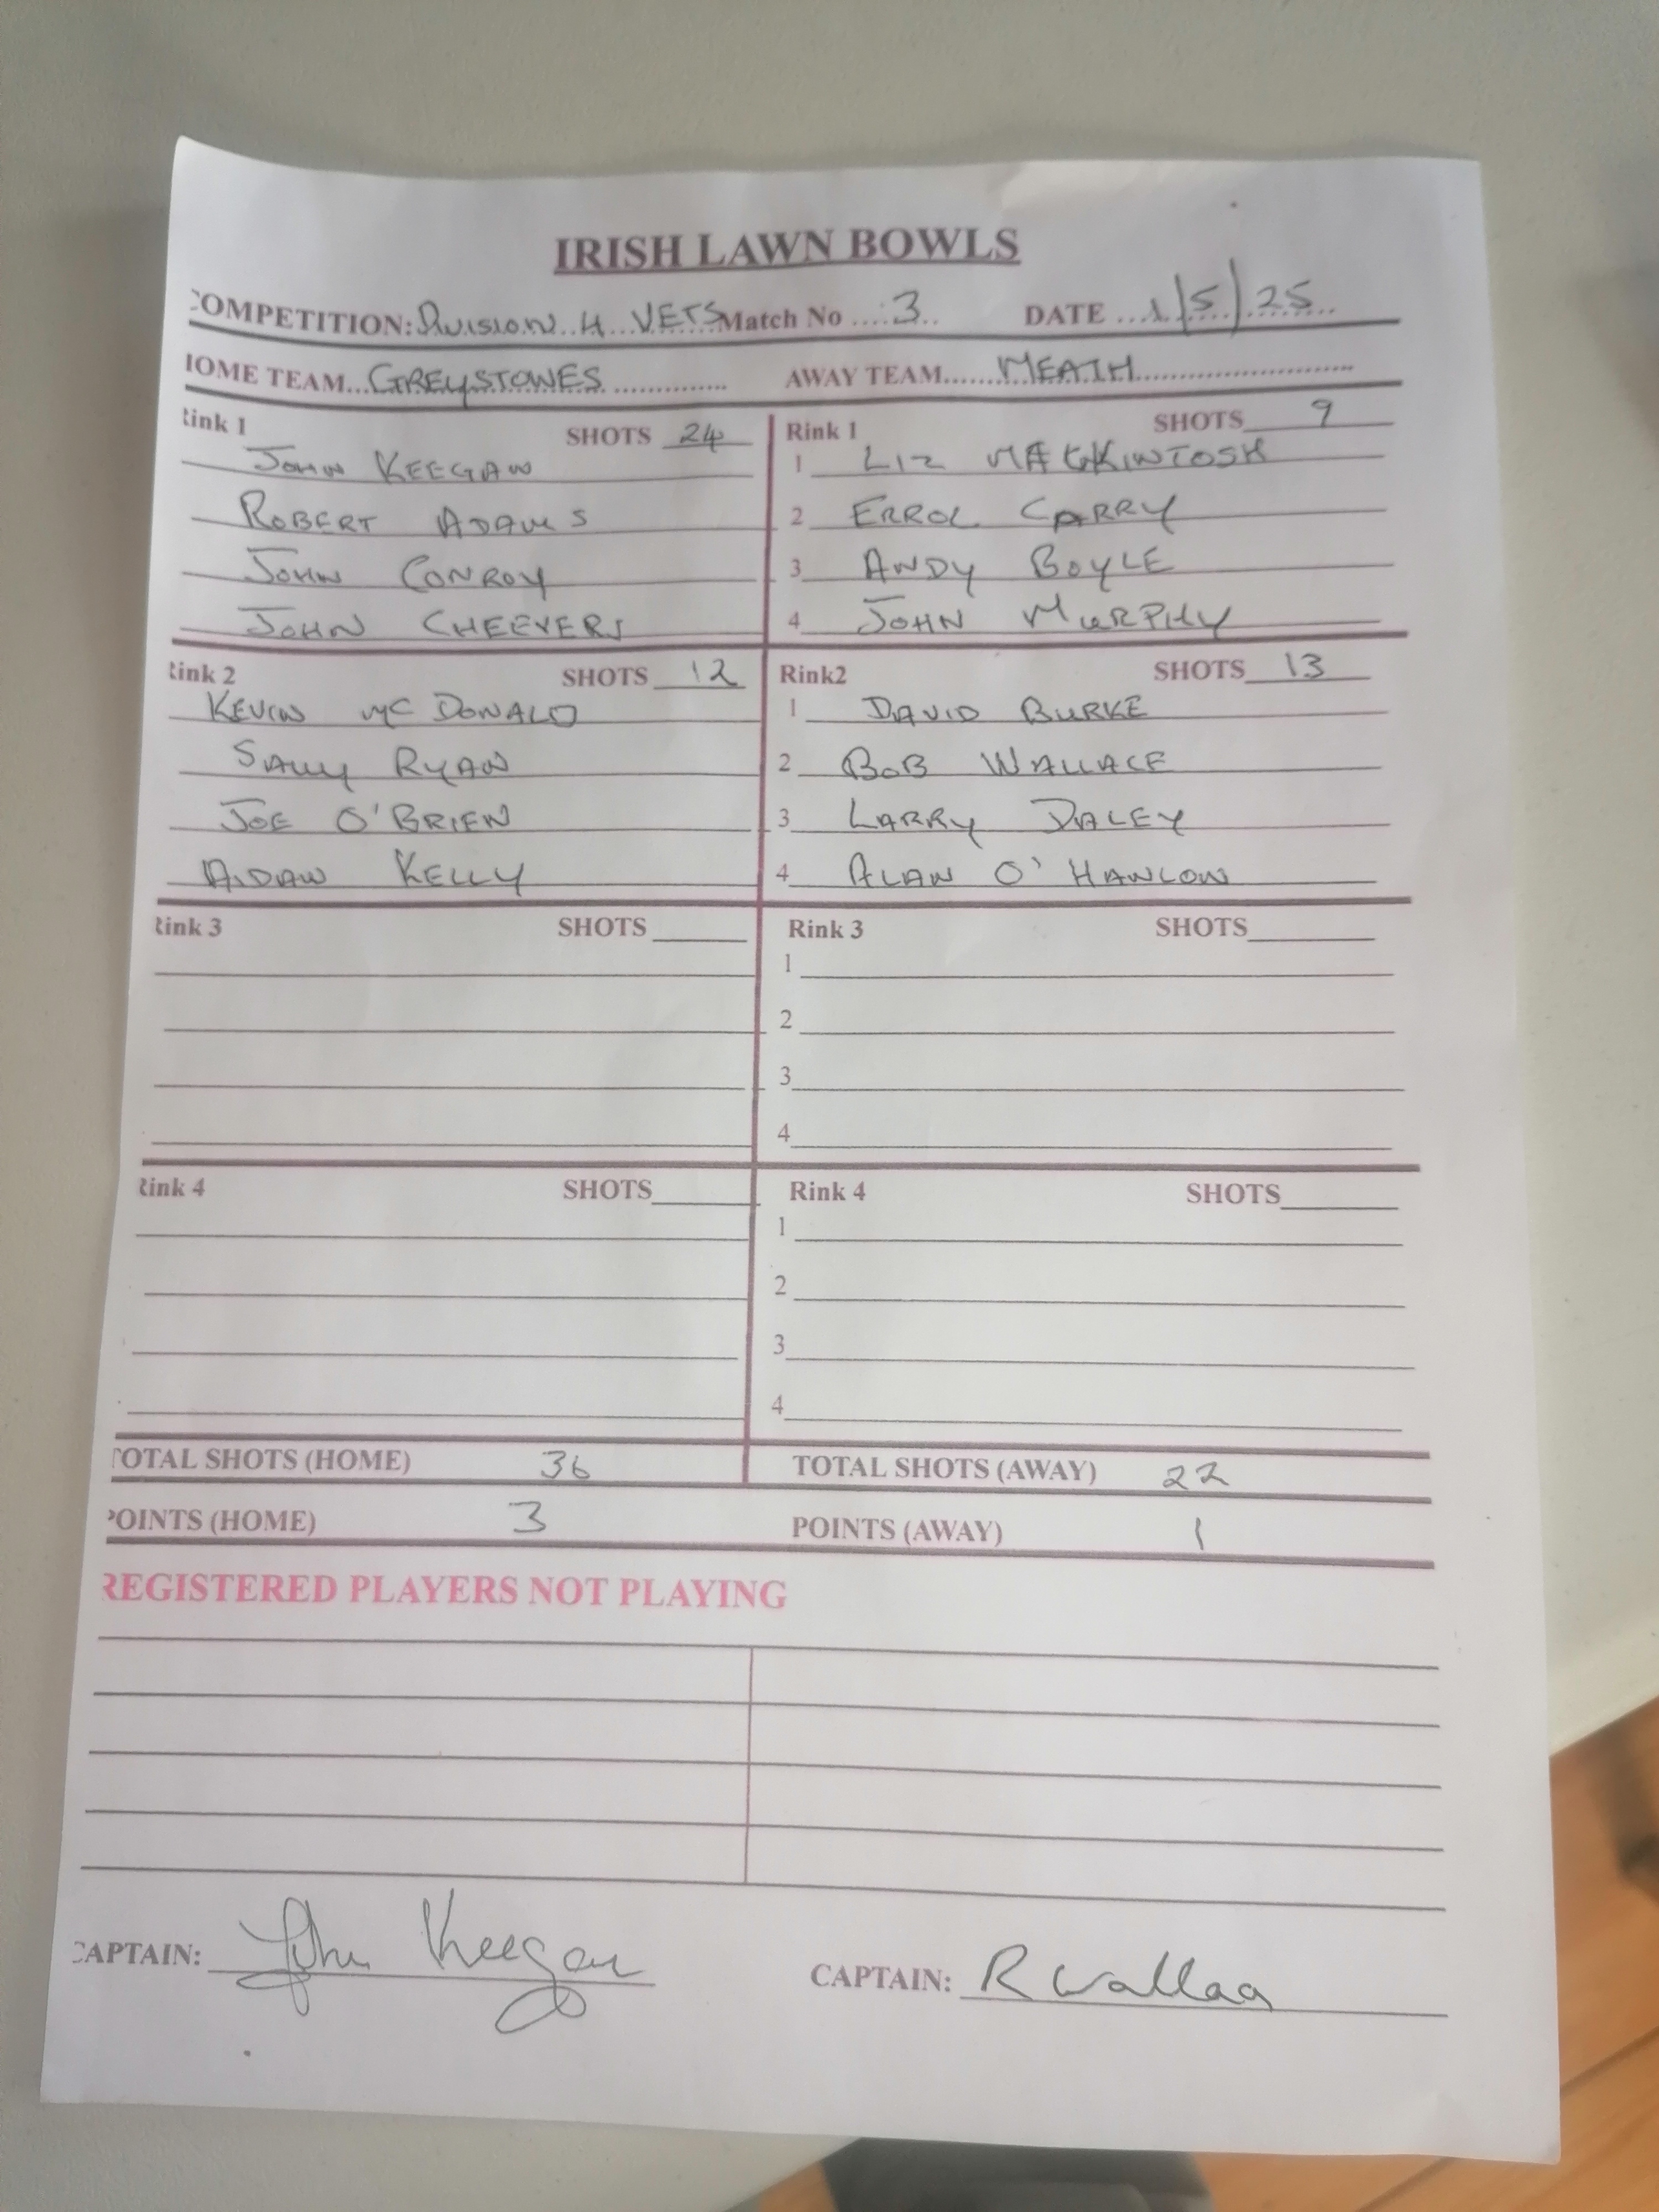 IRISH LAWN BOWLS
COMPETITION: Division 4 VETS Match No 3 DATE 1/5/25
HOME TEAM GREYSTONES AWAY TEAM MEATH
Rink 1 SHOTS 24
JOHN KEEGAN
ROBERT ADAMS
JOHN CONROY
JOHN CHEEVERS
Rink 1 SHOTS 9
1 LIZ MACKKINTOSH
2 ERROL CARRY
3 ANDY BOYLE
4 JOHN MURPHY
Rink 2 SHOTS 12
KEVIN MC DONALD
SALLY RYAN
JOE O'BRIEN
AIDAN KELLY
Rink2 SHOTS 13
1 DAVID BURKE
2 BOB WALLACE
3 LARRY DALEY
4 ALAN O'HANLON
Rink 3 SHOTS
Rink 3 SHOTS
1
2
3
4
Rink 4 SHOTS
Rink 4 SHOTS
1
2
3
4
TOTAL SHOTS (HOME) 36 TOTAL SHOTS (AWAY) 22
POINTS (HOME) 3 POINTS (AWAY) 1
REGISTERED PLAYERS NOT PLAYING
CAPTAIN: John Keegan CAPTAIN: R Wallace